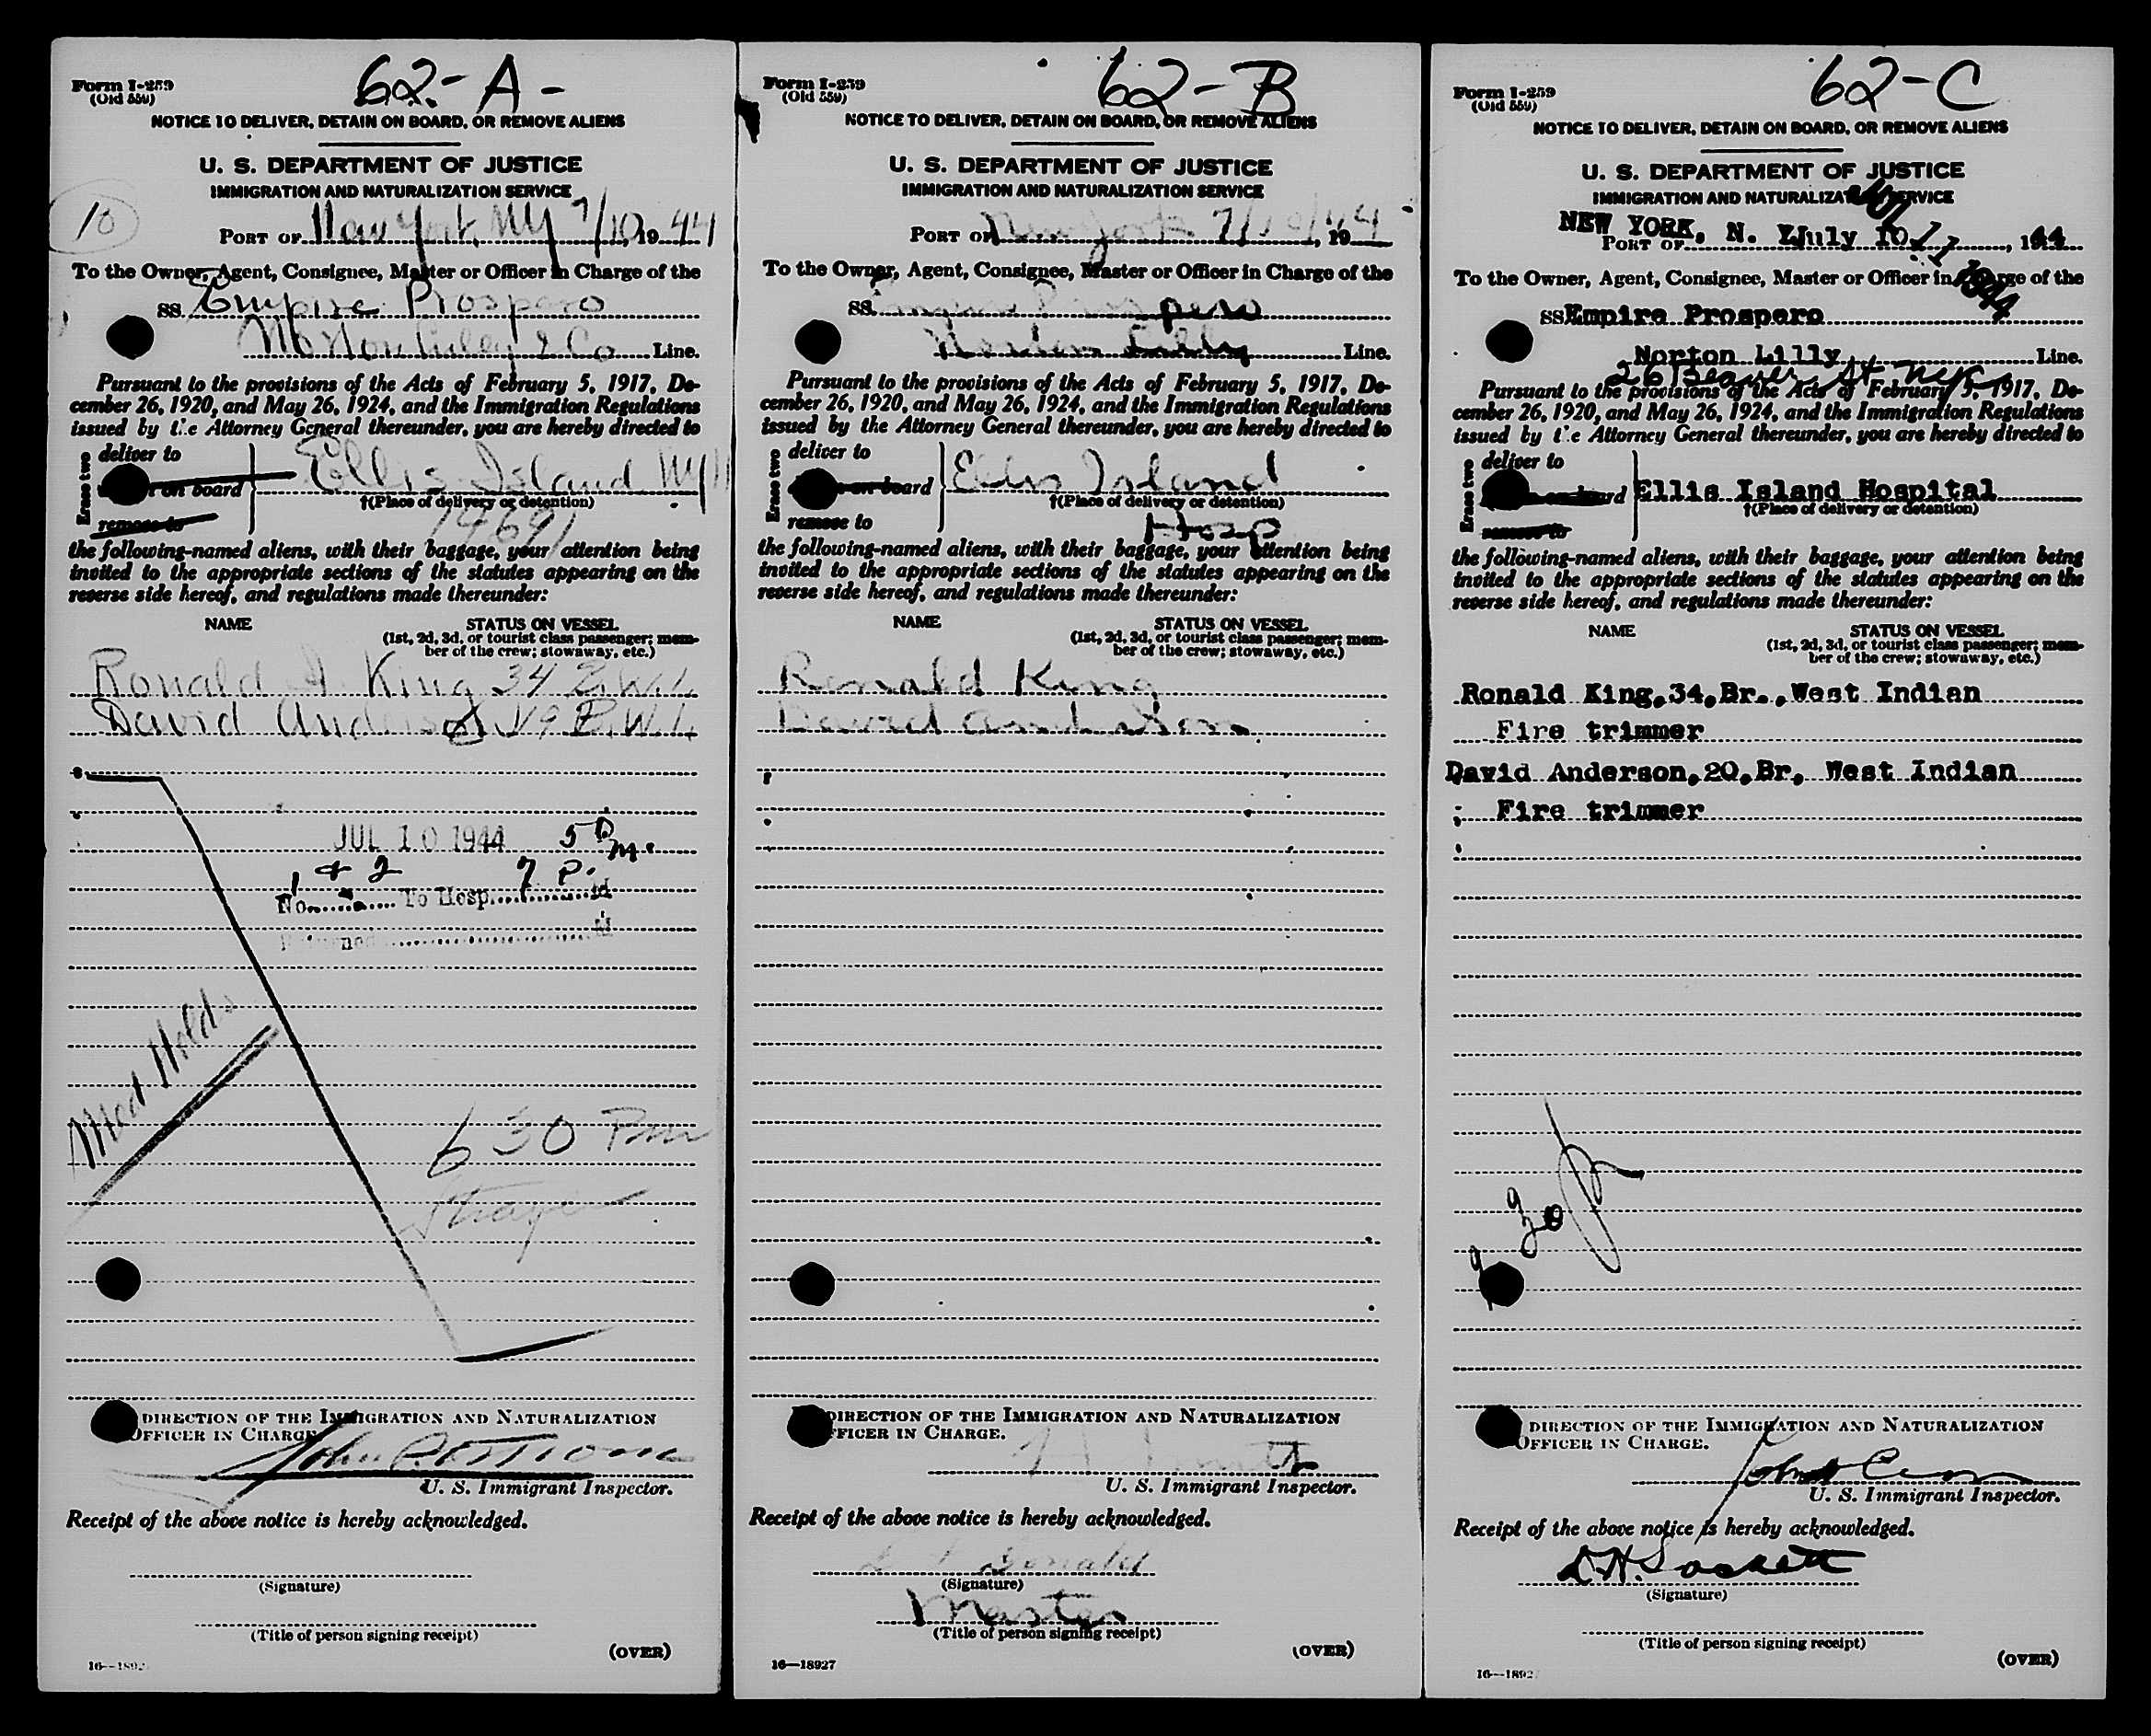 62-A-
Form I-259
(Old 559)
NOTICE TO DELIVER, DETAIN ON BOARD, OR REMOVE ALIENS
U. S. DEPARTMENT OF JUSTICE
IMMIGRATION AND NATURALIZATION SERVICE
10
PORT OF New York, NY 7/10, 1944
To the Owner, Agent, Consignee, Master or Officer in Charge of the
SS Empire Prospero
& Co Line.
Pursuant to the provisions of the Acts of February 5, 1917, De-
cember 26, 1920, and May 26, 1924, and the Immigration Regulations
issued by the Attorney General thereunder, you are hereby directed to
Erase two
deliver to
on board
Ellis Island NY
†(Place of delivery or detention)
remove to
14691
the following-named aliens, with their baggage, your attention being
invited to the appropriate sections of the statutes appearing on the
reverse side hereof, and regulations made thereunder:
NAME STATUS ON VESSEL
(1st, 2d, 3d, or tourist class passenger; mem-
ber of the crew; stowaway, etc.)
Ronald King 34 B.W.I.
David Anderson 19 B.W.I.
JUL 10 1944 5 Pm.
1 & 2 7 P.
No. To Hosp.
Med Holds
6 30 Pm
DIRECTION OF THE IMMIGRATION AND NATURALIZATION
OFFICER IN CHARGE
John
U. S. Immigrant Inspector.
Receipt of the above notice is hereby acknowledged.
(Signature)
(Title of person signing receipt)
(OVER)
16—1892
62-B
Form I-259
(Old 559)
NOTICE TO DELIVER, DETAIN ON BOARD, OR REMOVE ALIENS
U. S. DEPARTMENT OF JUSTICE
IMMIGRATION AND NATURALIZATION SERVICE
PORT OF New York 7/10/44, 19
To the Owner, Agent, Consignee, Master or Officer in Charge of the
SS. Empire Prospero
Norton Lilly Line.
Pursuant to the provisions of the Acts of February 5, 1917, De-
cember 26, 1920, and May 26, 1924, and the Immigration Regulations
issued by the Attorney General thereunder, you are hereby directed to
Erase two
deliver to
on board
Ellis Island
†(Place of delivery or detention)
remove to
Hosp
the following-named aliens, with their baggage, your attention being
invited to the appropriate sections of the statutes appearing on the
reverse side hereof, and regulations made thereunder:
NAME STATUS ON VESSEL
(1st, 2d, 3d, or tourist class passenger; mem-
ber of the crew; stowaway, etc.)
Ronald King
David Anderson
DIRECTION OF THE IMMIGRATION AND NATURALIZATION
FFICER IN CHARGE.
U. S. Immigrant Inspector.
Receipt of the above notice is hereby acknowledged.
(Signature)
Master
(Title of person signing receipt)
(OVER)
16—18927
62-C
Form I-259
(Old 559)
NOTICE TO DELIVER, DETAIN ON BOARD, OR REMOVE ALIENS
U. S. DEPARTMENT OF JUSTICE
IMMIGRATION AND NATURALIZATION SERVICE
NEW YORK, N. Y
PORT OF July 10, 1944
To the Owner, Agent, Consignee, Master or Officer in Charge of the
SS Empire Prospero
Norton Lilly Line.
26 Beaver St NYC
Pursuant to the provisions of the Acts of February 5, 1917, De-
cember 26, 1920, and May 26, 1924, and the Immigration Regulations
issued by the Attorney General thereunder, you are hereby directed to
Erase two
deliver to
Ellis Island Hospital
†(Place of delivery or detention)
remove to
the following-named aliens, with their baggage, your attention being
invited to the appropriate sections of the statutes appearing on the
reverse side hereof, and regulations made thereunder:
NAME STATUS ON VESSEL
(1st, 2d, 3d, or tourist class passenger; mem-
ber of the crew; stowaway, etc.)
Ronald King,34,Br.,West Indian
Fire trimmer
David Anderson,20,Br, West Indian
Fire trimmer
DIRECTION OF THE IMMIGRATION AND NATURALIZATION
OFFICER IN CHARGE.
U. S. Immigrant Inspector.
Receipt of the above notice is hereby acknowledged.
(Signature)
(Title of person signing receipt)
(OVER)
16—1892